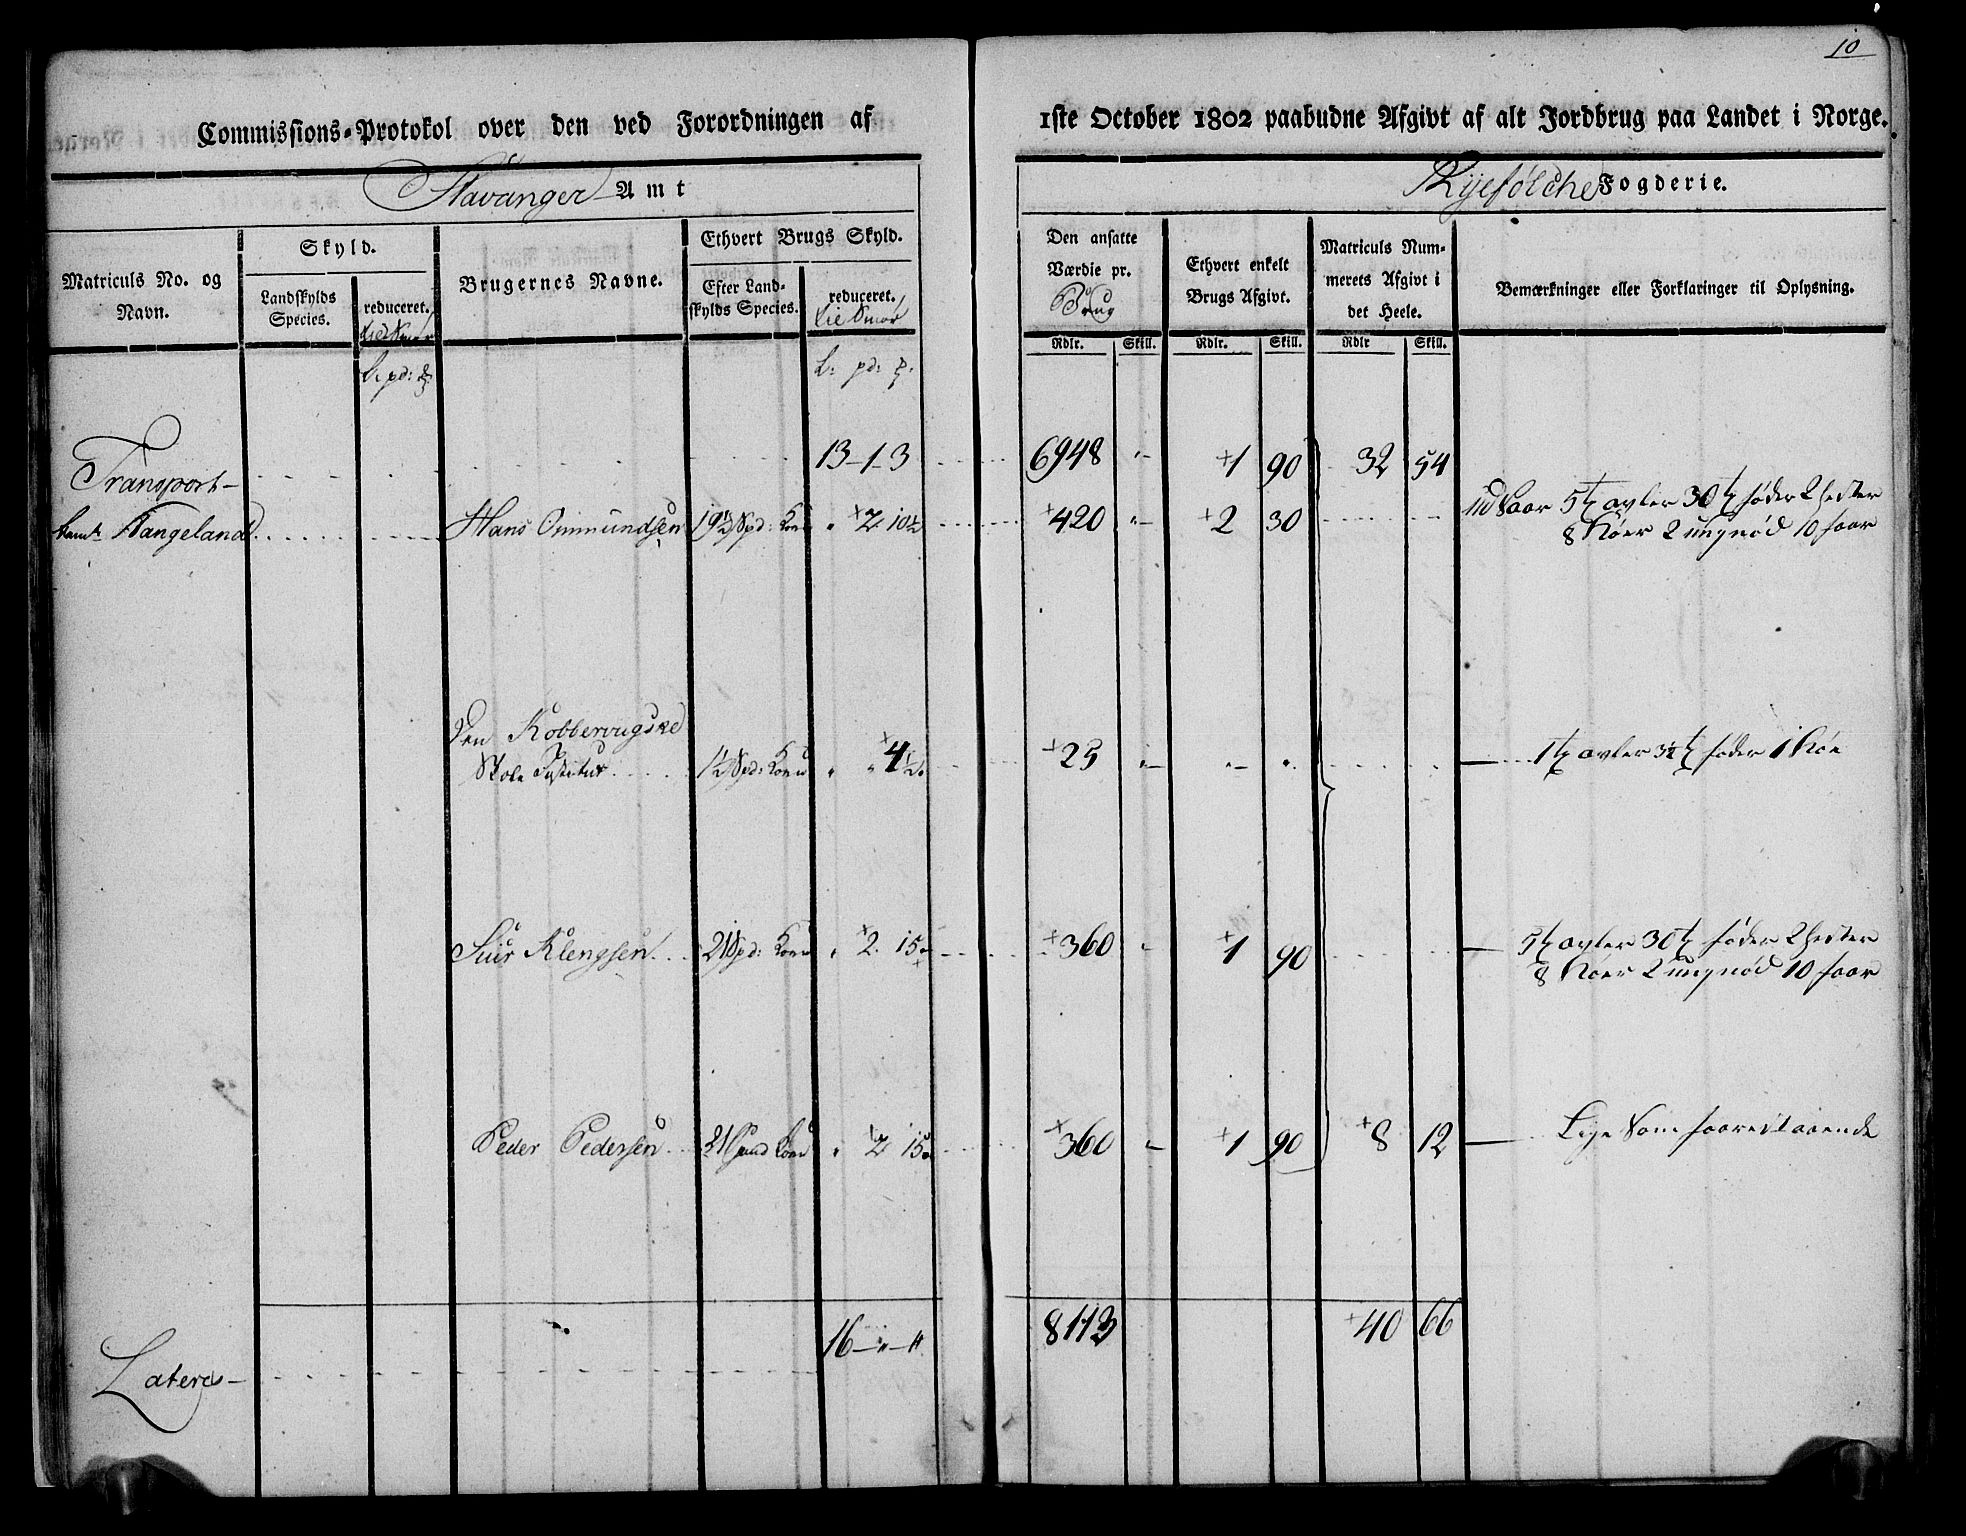 10
Commissions-Protokol over den ved Forordningen af 1ste October 1802 paabudne Afgivt af alt Jordbrug paa Landet i Norge.
Stavanger Amt
Ryefölche Fogderie.
Matriculs No. og Navn.
Skyld.
Landskylds Species.
reduceret.
Brugernes Navne.
Ethvert Brugs Skyld.
Efter Landskylds Species.
reduceret.
Den ansatte Værdie pr. Brug
Ethvert enkelt Brugs Afgivt.
Matriculs Nummerets Afgivt i det Heele.
Bemærkninger eller Forklaringer til Oplysning.
Rdlr. Skill. Rdlr. Skill. Rdlr Skill.
L: pd:
L: pd:
Transport 13-1-3 6948 "- 1 90 32 54
Hangeland Hans Ommundsen 19½ Spd: Korn " 2 10½ 420 "- 2 30 5 t avler 30 t föder 2 hester
8 Köer 2 ungnöd 10 faar
Den Kobbervigske
Skole Institut 1½ Spd: Korn " " 4½ 25 "- "- " 1 t avler 3½ t föder 1 Koe
Siur Klengsen 21 Spd: Korn " 2 15 360 " 1 90 5 t avler 30 t föder 2 hester
8 Köer 2 ungnöd 10 faar
Peder Pedersen 21 Spand Korn " 2 15 360 - 1 90 8 12 Lige som foorestaaende
Lateris 16-"-" 8113 40 66